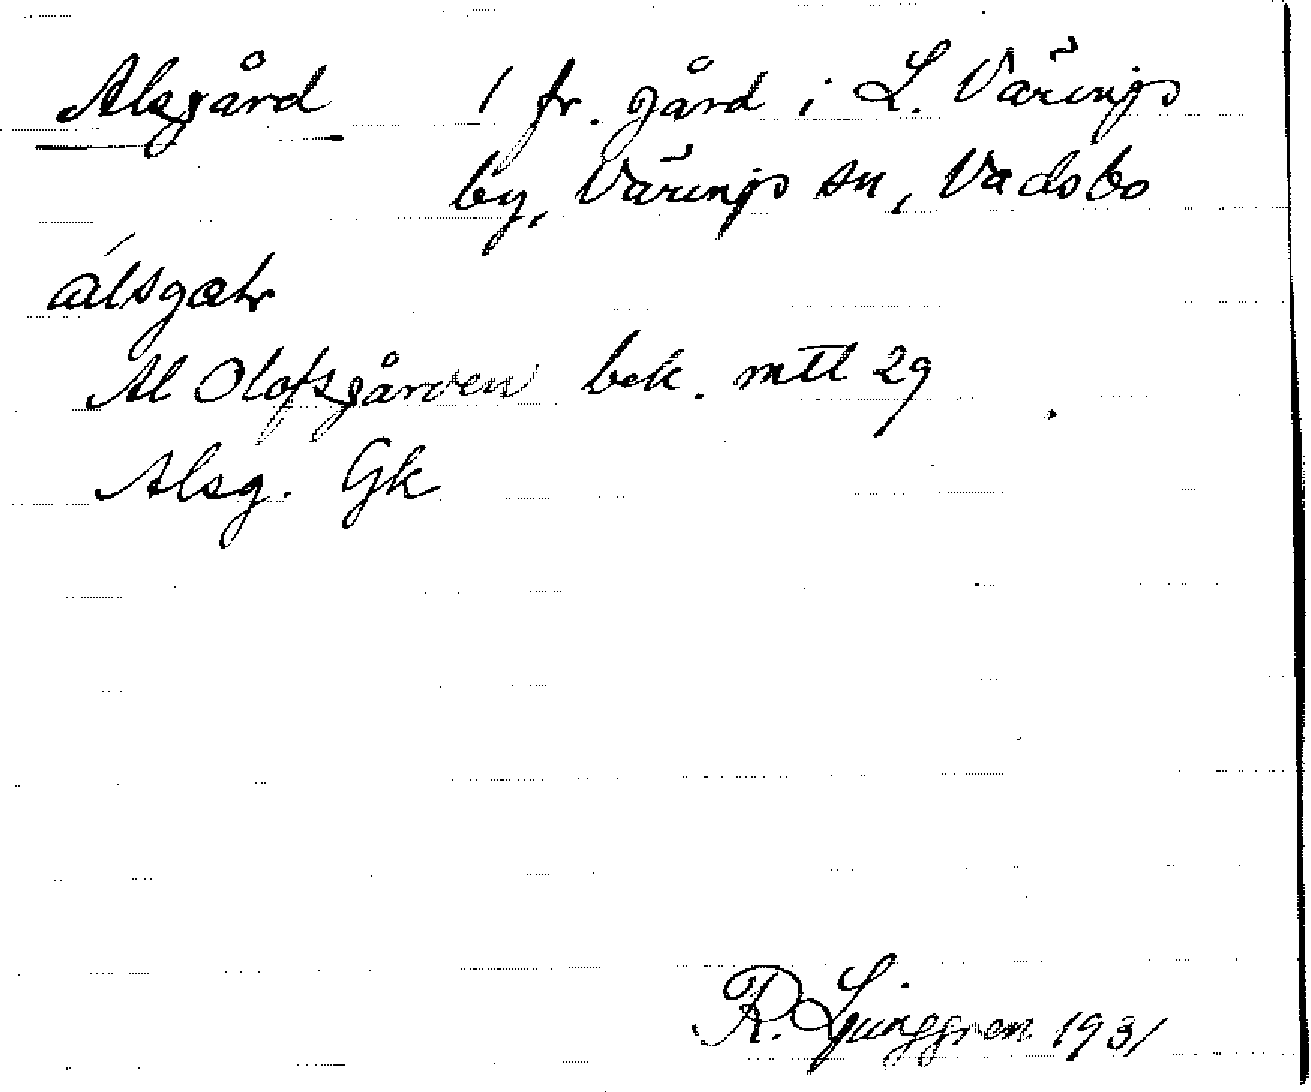 Alsgård 1 fr. gård i L. Värings
by, Värings sn, Vadsbo
álsgæhr
Al Olofsgården bek. mtl 29
Alsg. Gk
R. Ljunggren 1931